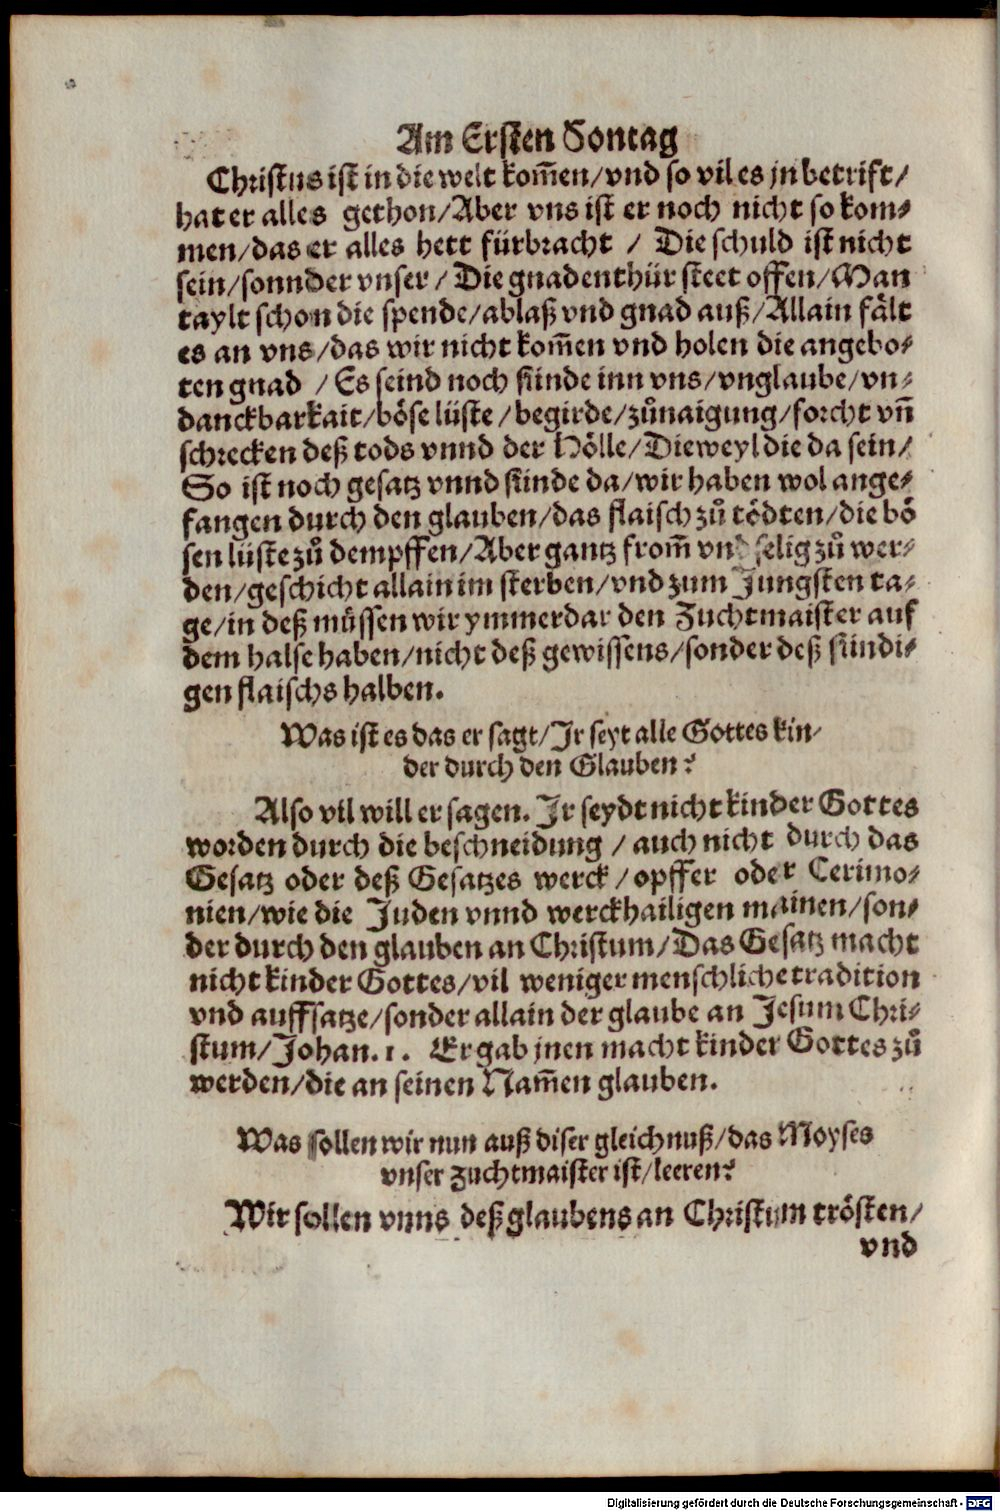 Am Ersten Sontag
Christus ist in die welt kom̃en/vnd so vil es jn betrift/
hat er alles gethon/Aber vns ist er noch nicht so kom⸗
men/das er alles hett fürbracht / Die schuld ist nicht
sein/sonnder vnser / Die gnadenthür steet offen/Man
taylt schon die spende/ablaß vnd gnad auß/Allain fält
es an vns/das wir nicht kom̃en vnd holen die angebo⸗
ten gnad / Es seind noch sünde inn vns/vnglaube/vn⸗
danckbarkait/böse lüste/begirde/zůnaigung/forcht vñ
schrecken deß tods vnnd der Hölle/Dieweyl die da sein/
So ist noch gesatz vnnd sünde da/wir haben wol ange⸗
fangen durch den glauben/das flaisch zů tödten/die bö
sen lüste zů dempffen/Aber gantz from̃ vnd selig zů wer⸗
den/geschicht allain im sterben/vnd zum Jungsten ta⸗
ge/in deß müssen wir ymmerdar den Zuchtmaister auf
dem halse haben/nicht deß gewissens/sonder deß sündi⸗
gen flaischs halben.
Was ist es das er sagt/Jr seyt alle Gottes kin⸗
der durch den Glauben?
Also vil will er sagen. Jr seydt nicht kinder Gottes
worden durch die beschneidung / auch nicht durch das
Gesatz oder deß Gesatzes werck/opffer oder Cerimo⸗
nien/wie die Juden vnnd werckhailigen mainen/son⸗
der durch den glauben an Christum/Das Gesatz macht
nicht kinder Gottes/vil weniger menschliche tradition
vnd auffsatze/sonder allain der glaube an Jesum Chri⸗
stum/Johan.1. Er gab jnen macht kinder Gottes zů
werden/die an seinen Nam̃en glauben.
Was sollen wir nun auß diser gleichnuß/das Moyses
vnser zuchtmaister ist/leeren?
Wir sollen vnns deß glaubens an Christum trösten/
vnd
Digitalisierung gefördert durch die Deutsche Forschungsgemeinschaft - DFG